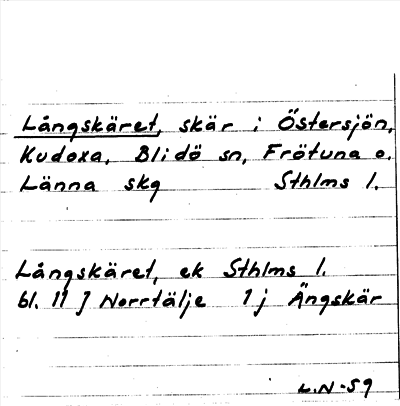 Långskäret, skär i Östersjön,
Kudoxa, Blidö sn, Frötuna o.
Länna skg Sthlms l.
Långskäret, ek Sthlms l.
bl. 11 J Norrtälje 1j Ängskär
L.N-59